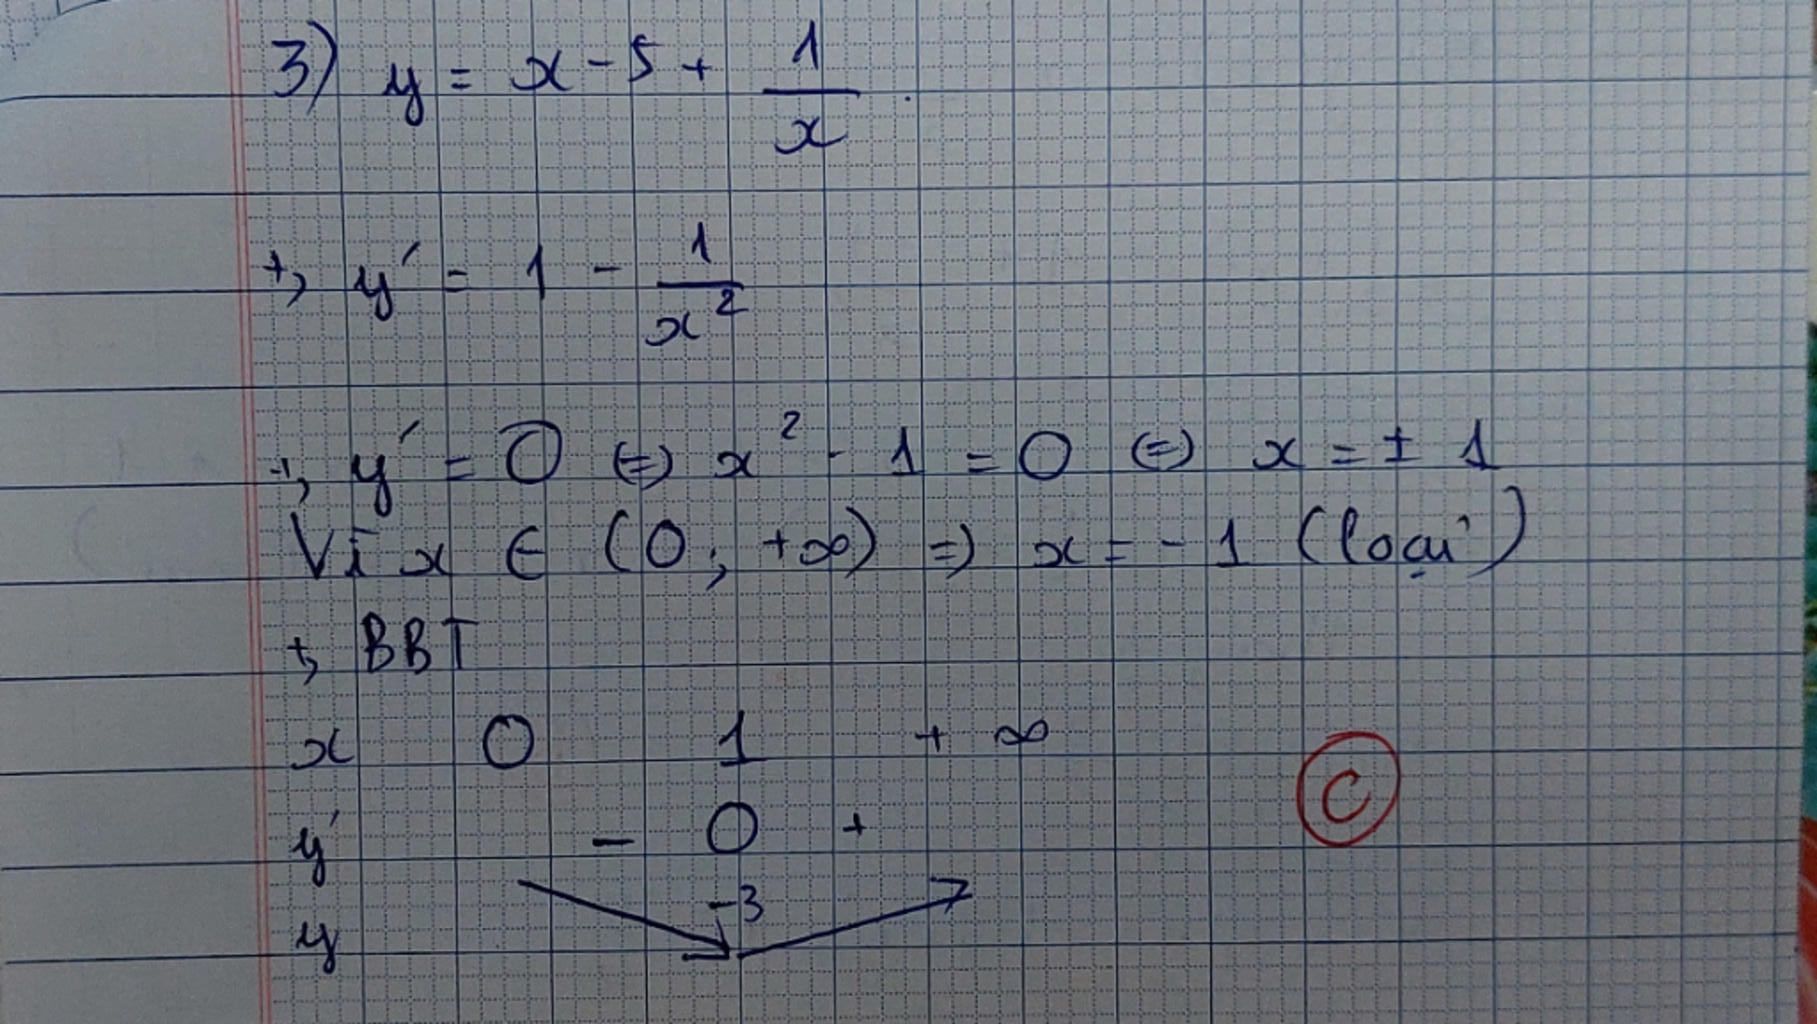 3) y = x - 5 + 1/x.
+, y' = 1 - 1/x²
+, y' = 0 (=) x² - 1 = 0 (=) x = ± 1
Vì x ∈ (0; +∞) => x = - 1 (loại)
+, BBT
x 0 1 + ∞
y' - 0 +
C
-3
y